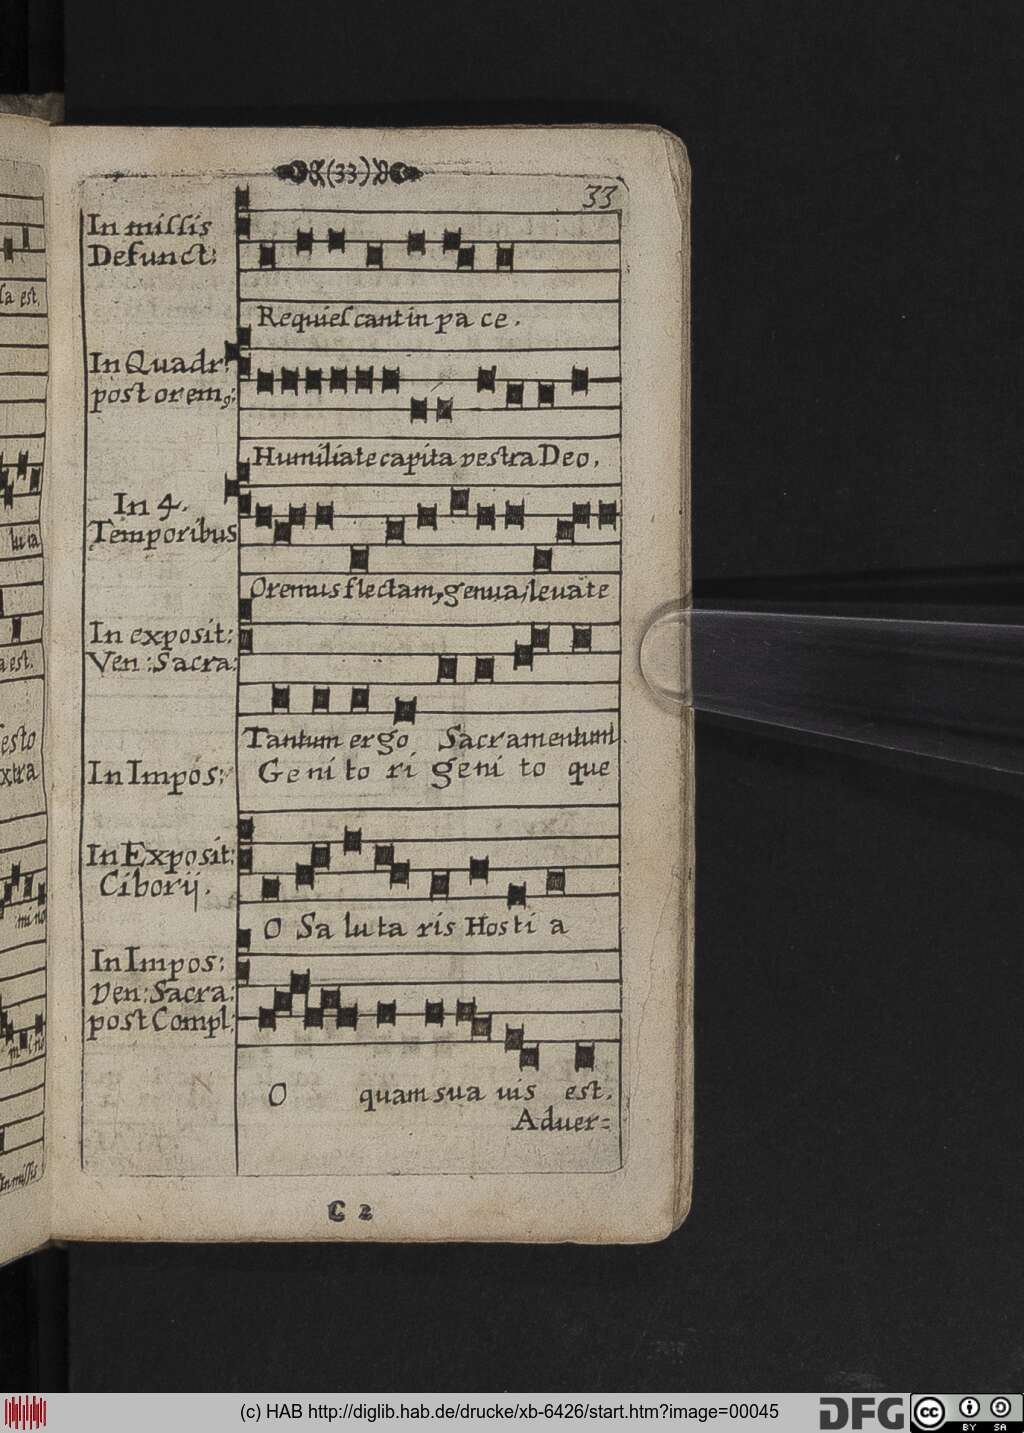 (33)
33
In missis
Defunct:
Requiescant in pa ce.
In Quadr:
post orem,:
Humiliate capita vestra Deo.
In 4.
Temporibus
Oremus flectam, genua, levate
In exposit:
Ven: Sacra:
Tantum ergo Sacramentum
In Impos:
Genito ri geni to que
In Exposit:
Ciborij.
O Sa lu ta ris Hosti a
In Impos:
Ven: Sacra:
post Compl:
O quam sua uis est.
Aduer=
C 2
(c) HAB http://diglib.hab.de/drucke/xb-6426/start.htm?image=00045
DFG
cc
BY SA